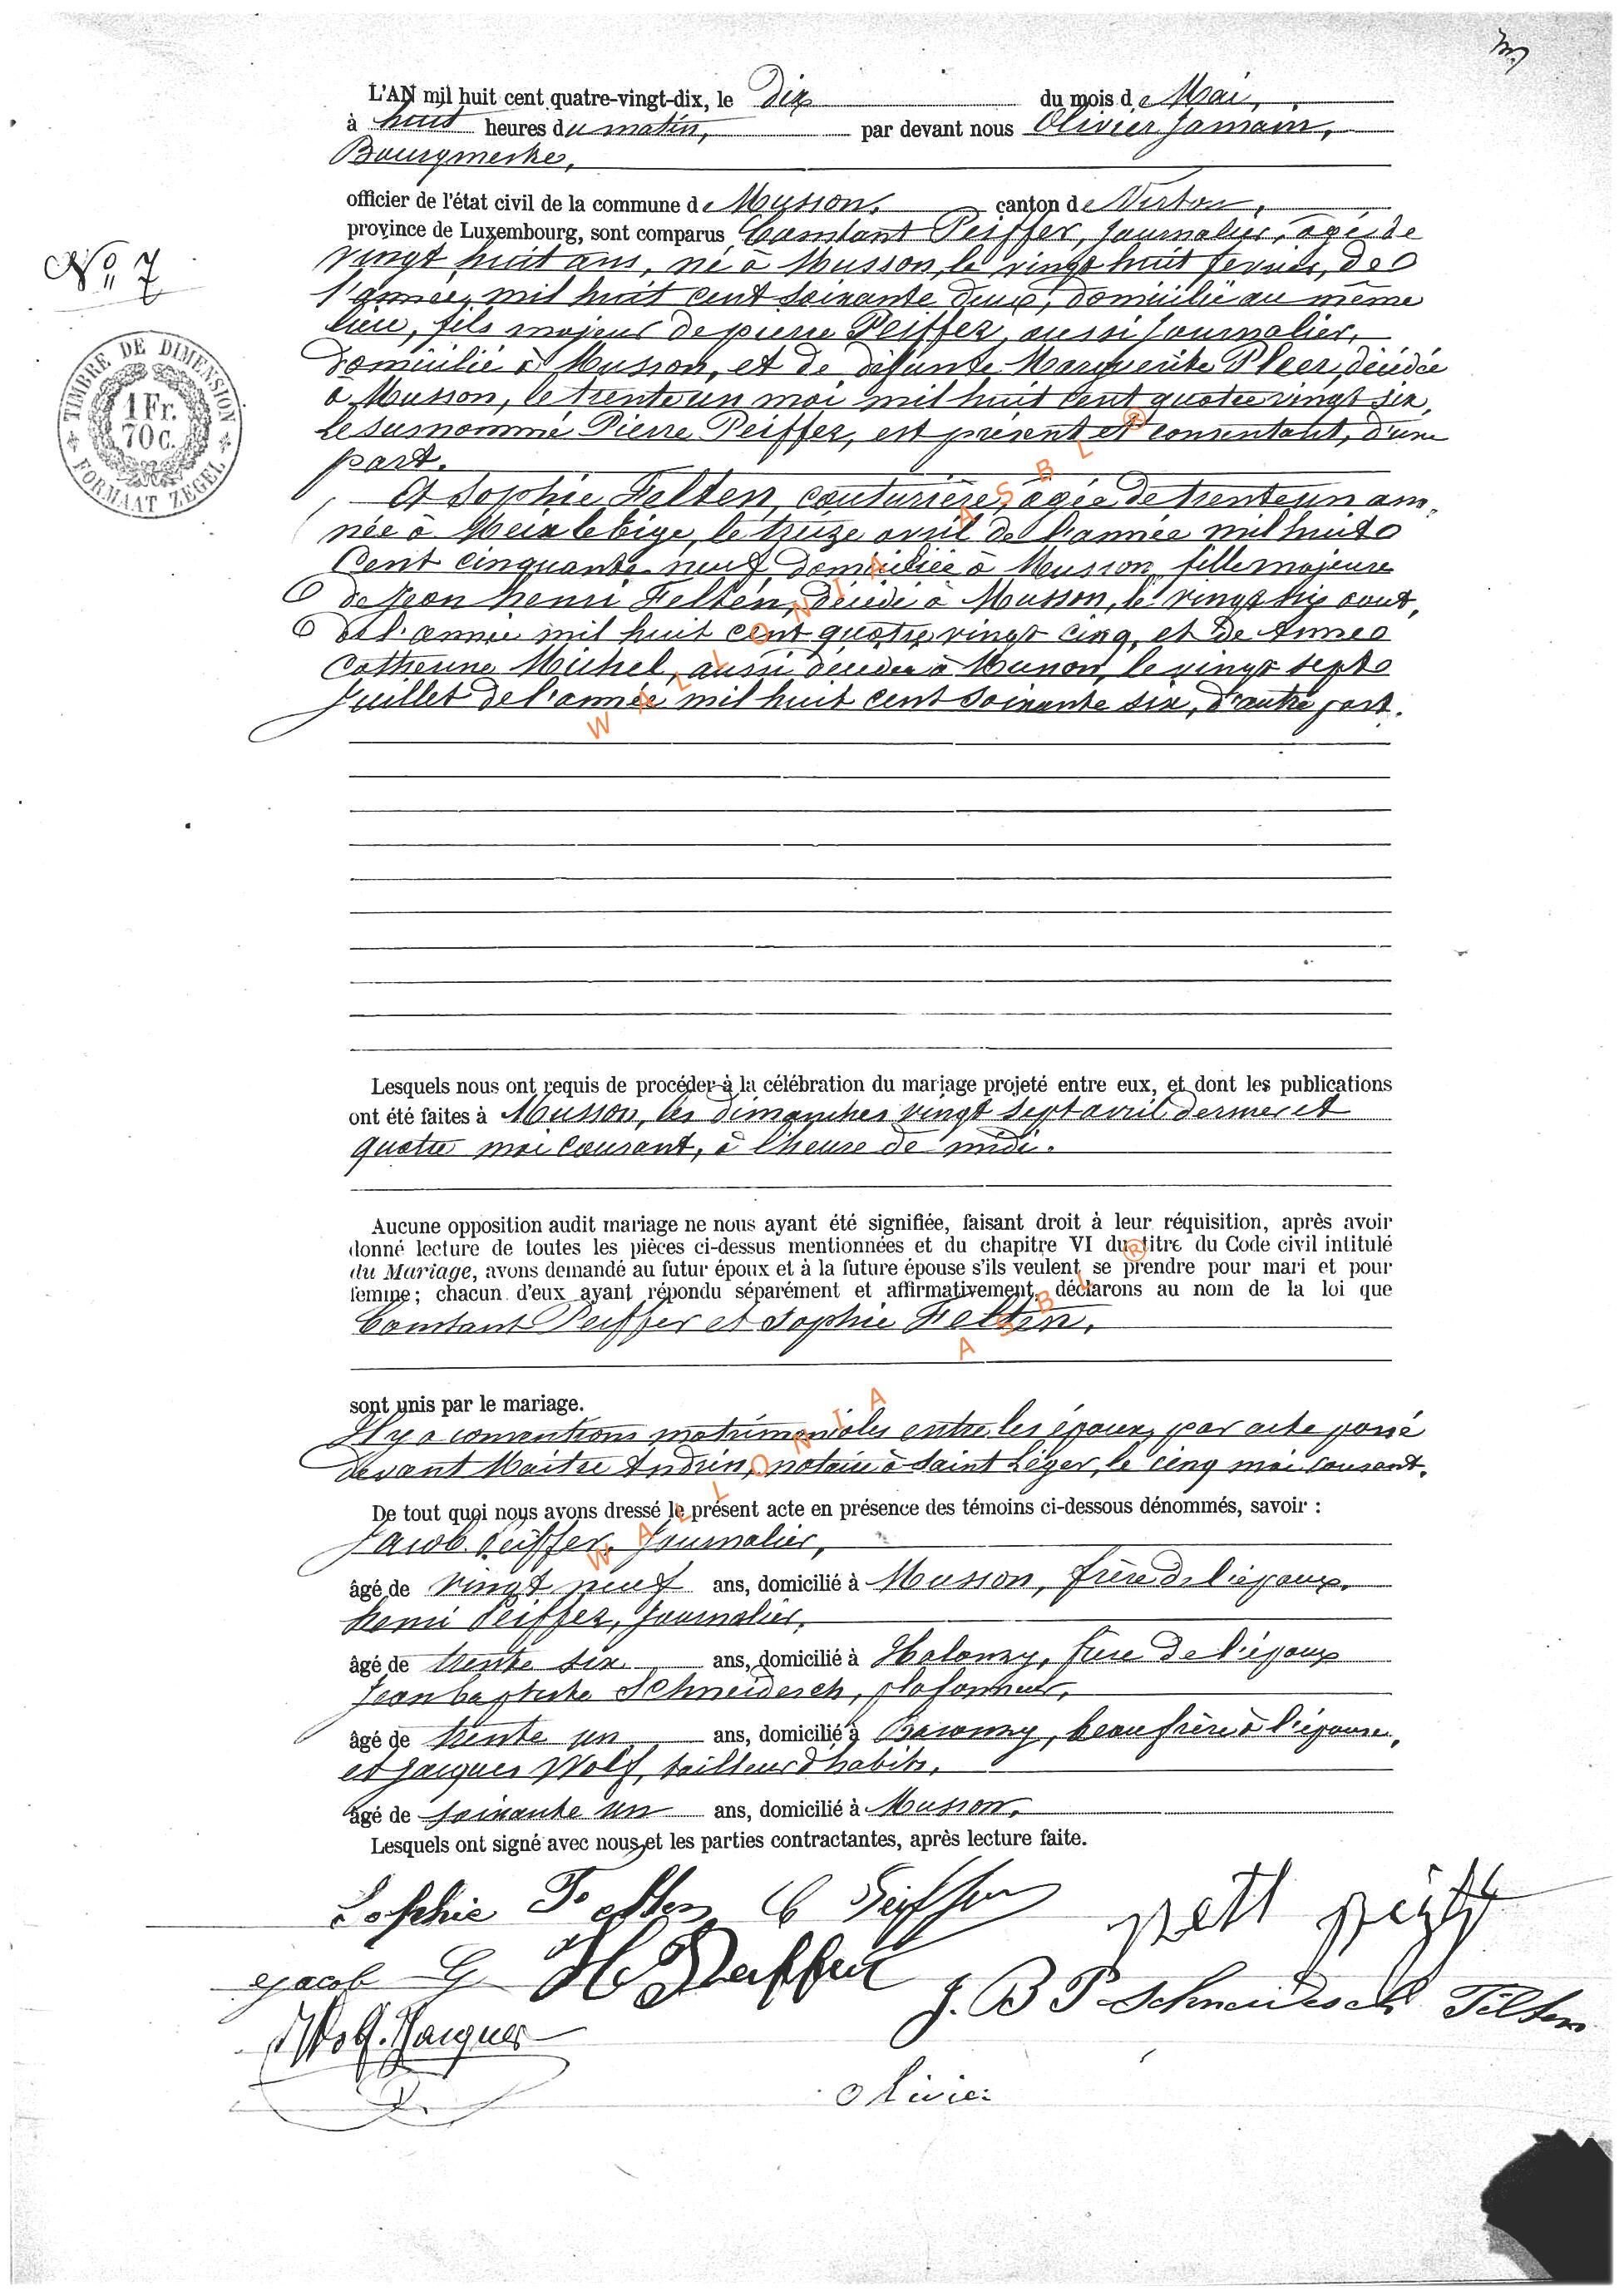 L'AN mil huit cent quatre-vingt-dix, le Dix du mois de Mai,
à huit heures du matin, par devant nous Olivier Jamain,
Bourgmestre,
officier de l'état civil de la commune de Musson, canton de Virton,
province de Luxembourg, sont comparus Constant Peiffer, journalier, agé de
vingt huit ans, né à Musson, le vingt huit fevrier, de
l'année, mil huit cent soixante deux, domicilié au même
lieu, fils majeur de pierre Peiffer, aussi journalier,
domicilié à Musson, et de défunte Marguerite Pleer, décédée
à Musson, le trente un mai mil huit cent quatre vingt six,
le susnommé Pierre Peiffer, est présent et consentant, d'une
part.
Et Sophie Felten, couturière, agée de trente un ans,
née à Meix le tige, le treize avril de l'année mil huit
cent cinquante neuf domiciliée à Musson, fille majeure
de Jean henri Felten, décédé à Musson, le vingt six aout,
de l'année mil huit cent quatre vingt cinq, et de Anne
Catherine Michel, aussi décédée à Musson, le vingt sept
juillet de l'année mil huit cent soixante six, d'autre part.
N° 7
TIMBRE DE DIMENSION
1 Fr.
70 C.
FORMAAT ZEGEL
Lesquels nous ont requis de procéder à la célébration du mariage projeté entre eux, et dont les publications
ont été faites à Musson, les dimanches vingt sept avril dernier et
quatre mai courant, à l'heure de midi.
Aucune opposition audit mariage ne nous ayant été signifiée, faisant droit à leur réquisition, après avoir
donné lecture de toutes les pièces ci-dessus mentionnées et du chapitre VI du titre du Code civil intitulé
du Mariage, avons demandé au futur époux et à la future épouse s'ils veulent se prendre pour mari et pour
femme; chacun d'eux ayant répondu séparément et affirmativement, déclarons au nom de la loi que
Constant Peiffer et Sophie Felten,
sont unis par le mariage.
Il y a conventions matrimoniales entre les époux, par acte passé
devant Maitre Andrin, notaire à Saint Léger, le cinq mai courant.
De tout quoi nous avons dressé le présent acte en présence des témoins ci-dessous dénommés, savoir :
Jacob Peiffer, journalier,
âgé de vingt neuf ans, domicilié à Musson, frère de l'époux,
henri Peiffer, journalier,
âgé de trente six ans, domicilié à Halanzy, frère de l'époux
Jean baptiste Schneidesch, plafonneur,
âgé de trente un ans, domicilié à beau frère à l'épouse,
et Jacques Wolf, tailleur d'habits,
âgé de soixante un ans, domicilié à Musson,
Lesquels ont signé avec nous et les parties contractantes, après lecture faite.
Sophie Felten C Peiffer
jacob H Peiffer
J. B P Schneidesch Felten
Wolf. Jacques
Olivier
WALLONIA ASBL ®
WALLONIA ASBL ®